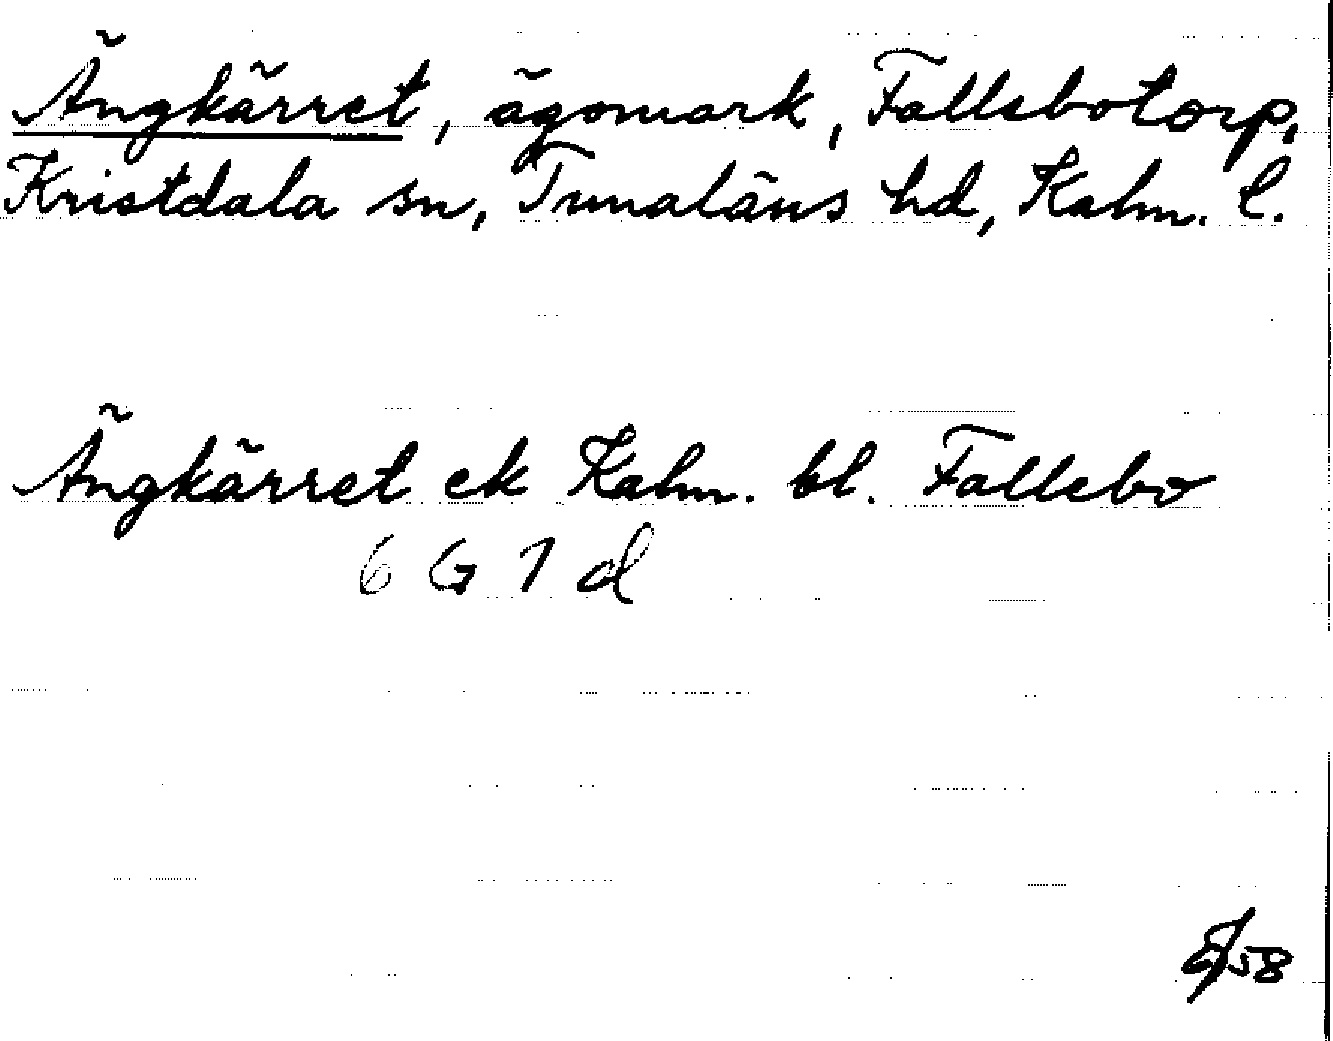 Ängkärret, ägomark, Fallebotorp,
Kristdala sn, Tunaläns hd, Kalm. l.
Ängkärret ek Kalm. bl. Fallebo
6 G 7 d
/58